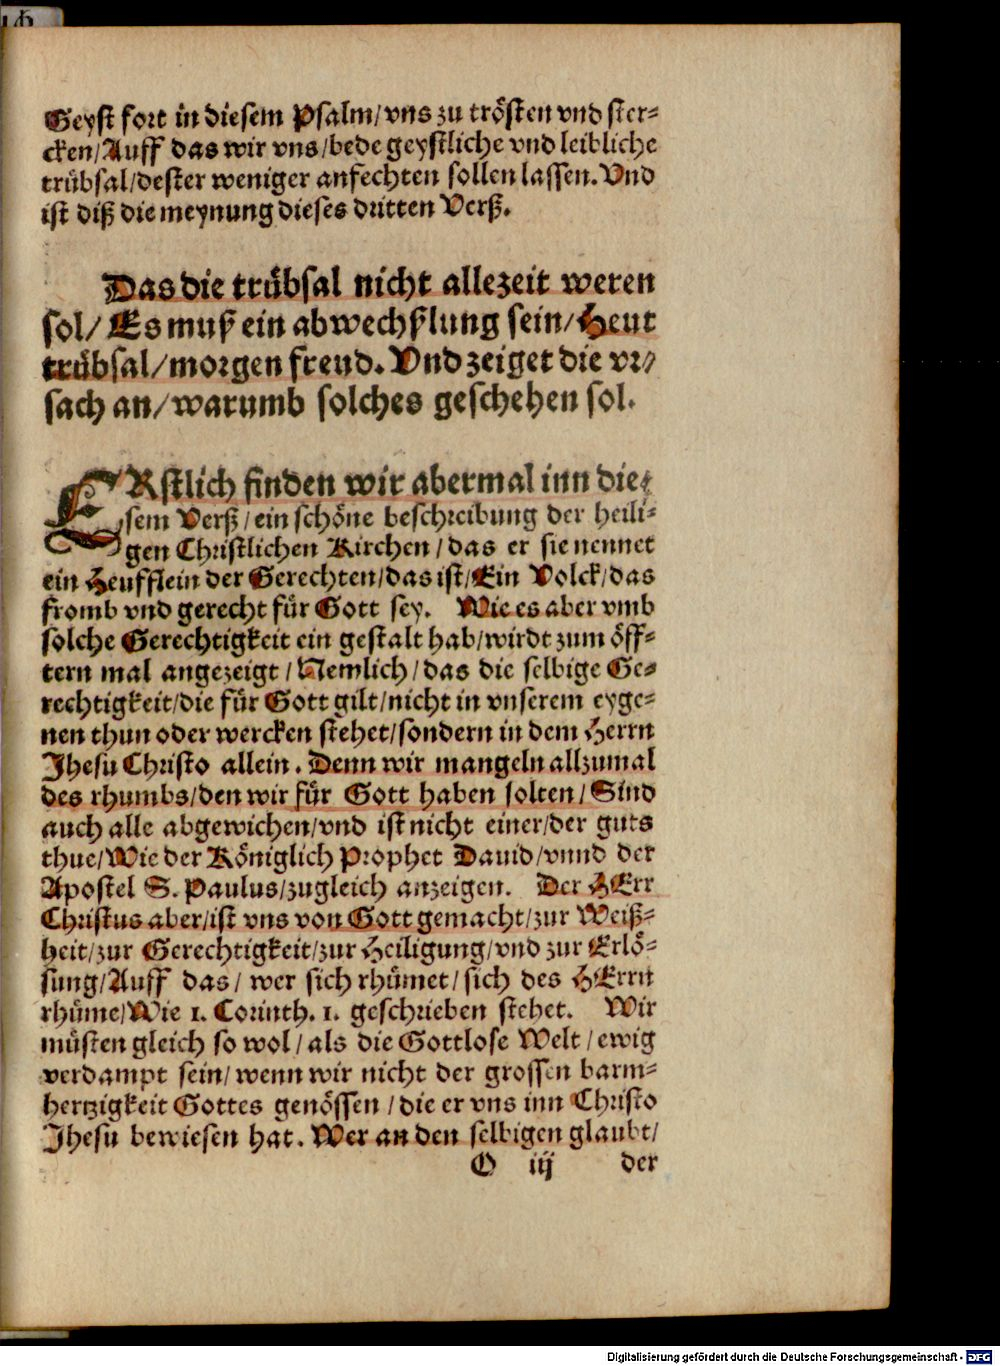 Geyst fort in diesem Psalm/vns zu trösten vnd ster-
cken/Auff das wir vns/bede geystliche vnd leibliche
trübsal/dester weniger anfechten sollen lassen. Vnd
ist diß die meynung dieses dritten Verß.
Das die trübsal nicht allezeit weren
sol/Es muß ein abwechßlung sein/Heut
trübsal/morgen freud. Vnd zeiget die vr-
sach an/warumb solches geschehen sol.
ERstlich finden wir abermal inn die-
sem Verß/ein schöne beschreibung der heili-
gen Christlichen Kirchen/das er sie nennet
ein Heufflein der Gerechten/das ist/Ein Volck/das
fromb vnd gerecht für Gott sey. Wie es aber vmb
solche Gerechtigkeit ein gestalt hab/wirdt zum öff-
tern mal angezeigt/Nemlich/das die selbige Ge-
rechtigkeit/die für Gott gilt/nicht in vnserem eyge-
nen thun oder wercken stehet/sondern in dem Herrn
Jhesu Christo allein. Denn wir mangeln allzumal
des rhumbs/den wir für Gott haben solten/Sind
auch alle abgewichen/vnd ist nicht einer/der guts
thue/Wie der Königlich Prophet Dauid/vnnd der
Apostel S. Paulus/zugleich anzeigen. Der HErr
Christus aber/ist vns von Gott gemacht/zur Weiß-
heit/zur Gerechtigkeit/zur Heiligung/vnd zur Erlö-
sung/Auff das/wer sich rhümet/sich des HErrn
rhüme/Wie 1. Corinth. 1. geschrieben stehet. Wir
müsten gleich so wol/als die Gottlose Welt/ewig
verdampt sein/wenn wir nicht der grossen barm-
hertzigkeit Gottes genössen/die er vns inn Christo
Jhesu bewiesen hat. Wer an den selbigen glaubt/
O iij der
Digitalisierung gefördert durch die Deutsche Forschungsgemeinschaft - DFG